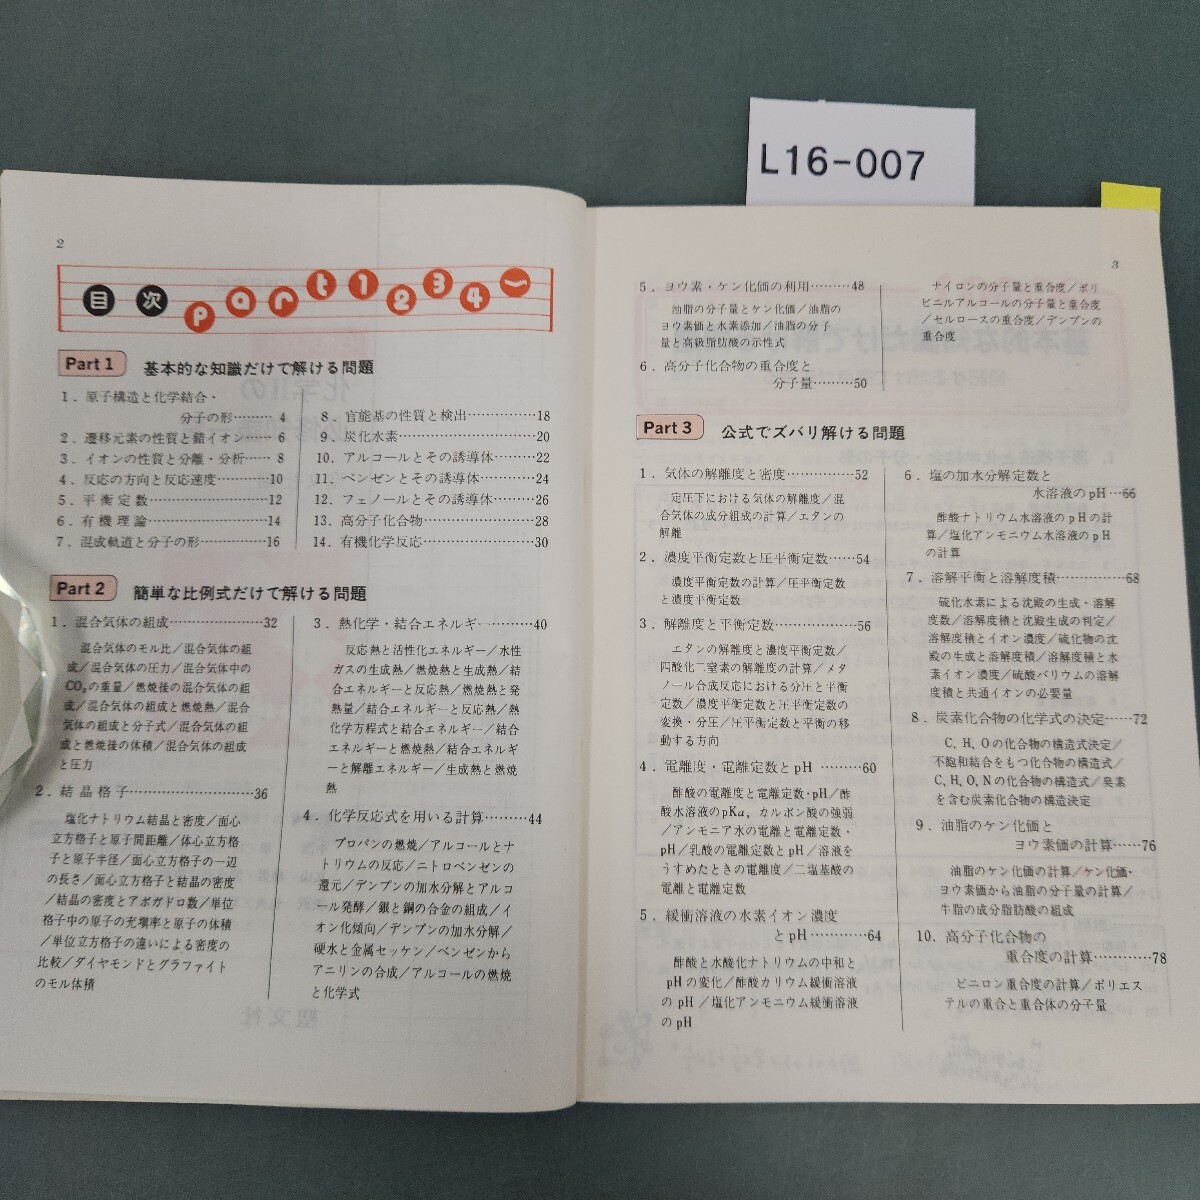 L16-007
2
目次 Part 1 2 3 4
Part 1 基本的な知識だけで解ける問題
1．原子構造と化学結合・
分子の形………4
2．遷移元素の性質と錯イオン……6
3．イオンの性質と分離・分析……8
4．反応の方向と反応速度…………10
5．平衡定数…………12
6．有機理論…………14
7．混成軌道と分子の形…………16
8．官能基の性質と検出…………18
9．炭化水素…………20
10．アルコールとその誘導体………22
11．ベンゼンとその誘導体…………24
12．フェノールとその誘導体………26
13．高分子化合物…………28
14．有機化学反応…………30
Part 2 簡単な比例式だけで解ける問題
1．混合気体の組成…………32
混合気体のモル比／混合気体の組
成／混合気体の圧力／混合気体中の
CO₂の重量／燃焼後の混合気体の組
成／混合気体の組成と燃焼熱／混合
気体の組成と分子式／混合気体の組
成と燃焼後の体積／混合気体の組成
と圧力
2．結晶格子…………36
塩化ナトリウム結晶と密度／面心
立方格子と原子間距離／体心立方格
子と原子半径／面心立方格子の一辺
の長さ／面心立方格子と結晶の密度
／結晶の密度とアボガドロ数／単位
格子中の原子の充塡率と原子の体積
／単位立方格子の違いによる密度の
比較／ダイヤモンドとグラファイト
のモル体積
3．熱化学・結合エネルギー………40
反応熱と活性化エネルギー／水性
ガスの生成熱／燃焼熱と生成熱／結
合エネルギーと反応熱／燃焼熱と発
熱量／結合エネルギーと反応熱／熱
化学方程式と結合エネルギー／結合
エネルギーと燃焼熱／結合エネルギ
ーと解離エネルギー／生成熱と燃焼
熱
4．化学反応式を用いる計算………44
プロパンの燃焼／アルコールとナ
トリウムの反応／ニトロベンゼンの
還元／デンプンの加水分解とアルコ
ール発酵／銀と銅の合金の組成／イ
オン化傾向／デンプンの加水分解／
硬水と金属セッケン／ベンゼンから
アニリンの合成／アルコールの燃焼
と化学式
3
5．ヨウ素・ケン化価の利用………48
油脂の分子量とケン化価／油脂の
ヨウ素価と水素添加／油脂の分子
量と高級脂肪酸の示性式
6．高分子化合物の重合度と
分子量………50
ナイロンの分子量と重合度／ポリ
ビニルアルコールの分子量と重合度
／セルロースの重合度／デンプンの
重合度
Part 3 公式でズバリ解ける問題
1．気体の解離度と密度…………52
定圧下における気体の解離度／混
合気体の成分組成の計算／エタンの
解離
2．濃度平衡定数と圧平衡定数……54
濃度平衡定数の計算／圧平衡定数
と濃度平衡定数
3．解離度と平衡定数…………56
エタンの解離度と濃度平衡定数／
四酸化二窒素の解離度の計算／メタ
ノール合成反応における分圧と平衡
定数／濃度平衡定数と圧平衡定数の
変換・分圧／圧平衡定数と平衡の移
動する方向
4．電離度・電離定数とpH………60
酢酸の電離度と電離定数・pH／酢
酸水溶液のpKa，カルボン酸の強弱
／アンモニア水の電離と電離定数・
pH／乳酸の電離定数とpH／溶液を
うすめたときの電離度／二塩基酸の
電離と電離定数
5．緩衝溶液の水素イオン濃度
とpH…………64
酢酸と水酸化ナトリウムの中和と
pHの変化／酢酸カリウム緩衝溶液
のpH／塩化アンモニウム緩衝溶液
のpH
6．塩の加水分解定数と
水溶液のpH…66
酢酸ナトリウム水溶液のpHの計
算／塩化アンモニウム水溶液のpH
の計算
7．溶解平衡と溶解度積…………68
硫化水素による沈殿の生成・溶解
度数／溶解度積と沈殿生成の判定／
溶解度積とイオン濃度／硫化物の沈
殿の生成と溶解度積／溶解度積と水
素イオン濃度／硫酸バリウムの溶解
度積と共通イオンの必要量
8．炭素化合物の化学式の決定……72
C, H, Oの化合物の構造式決定／
不飽和結合をもつ化合物の構造式／
C, H, O, Nの化合物の構造式／臭素
を含む炭素化合物の構造決定
9．油脂のケン化価と
ヨウ素価の計算……76
油脂のケン化価の計算／ケン化価・
ヨウ素価から油脂の分子量の計算／
牛脂の成分脂肪酸の組成
10．高分子化合物の
重合度の計算…………78
ビニロン重合度の計算／ポリエス
テルの重合と重合体の分子量